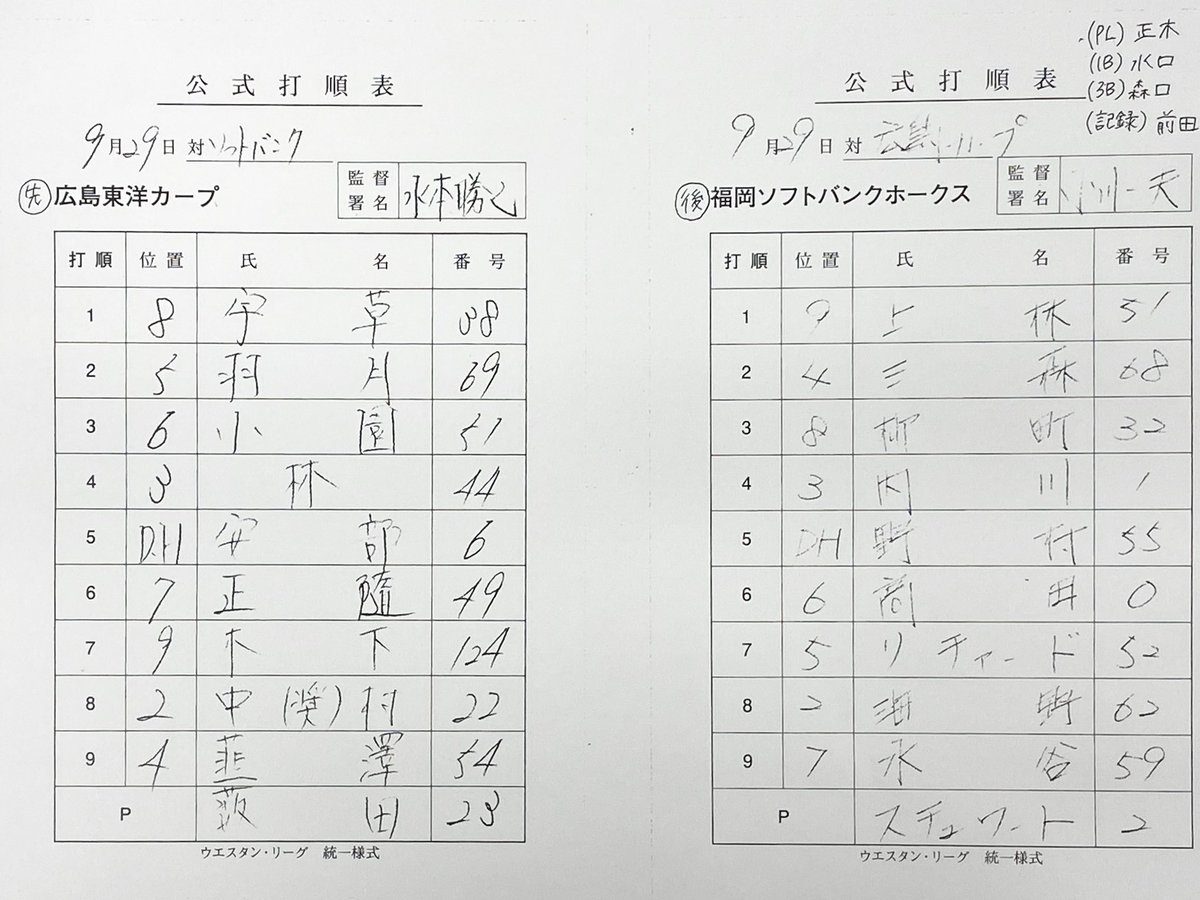 公式打順表
9月29日 対 ソフトバンク
先 広島東洋カープ
監督署名 水本勝己
打順 位置 氏名 番号
1 8 宇草 38
2 5 羽月 69
3 6 小園 51
4 3 林 44
5 DH 安部 6
6 7 正隨 49
7 9 木下 124
8 2 中(奨)村 22
9 4 韮澤 54
P 薮田 23
ウエスタン・リーグ 統一様式
・(PL) 正木
(1B) 水口
(3B) 森口
(記録) 前田
公式打順表
9月29日 対 広島カープ
後 福岡ソフトバンクホークス
監督署名 川一夫
打順 位置 氏名 番号
1 9 上林 51
2 4 三森 68
3 8 柳町 32
4 3 内川 1
5 DH 野村 55
6 6 髙田 0
7 5 リチャード 52
8 2 海野 62
9 7 水谷 59
P スチュワート 2
ウエスタン・リーグ 統一様式